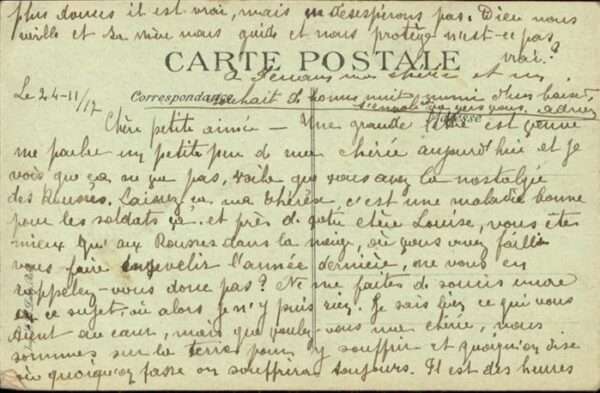 plus douces il est vrai, mais ne désespérons pas. Dieu nous
veille et sa mère nous guide et nous protège n'est-ce pas
vrai?
CARTE POSTALE
A demain ma chérie et un
Le 24-11/17
Correspondance souhait de bonne nuit muni d'un baiser
s'envole vers vous. Adrien
Adresse
Chère petite aimée – Une grande lettre est venue
me parler un petit peu de ma chérie aujourd'hui et je
vois que ça ne va pas, voilà que vous avez la nostalgie
des Rousses. Laissez ça ma Thérèse, c'est une maladie bonne
pour les soldats ça. et près de votre chère Louise, vous êtes
mieux qu'aux Rousses dans la neige, où vous avez failli
vous faire ensevelir l'année dernière, ne vous en
rappelez-vous donc pas? Ne me faites de soucis
à ce sujet, où alors, je n'y puis rien. Je sais bien ce qui vous
tient au cœur, mais que voulez-vous ma chérie, nous
sommes sur la terre pour y souffrir et quoiqu'on dise
où quoiqu'on fasse on souffrira toujours. Il est des heures